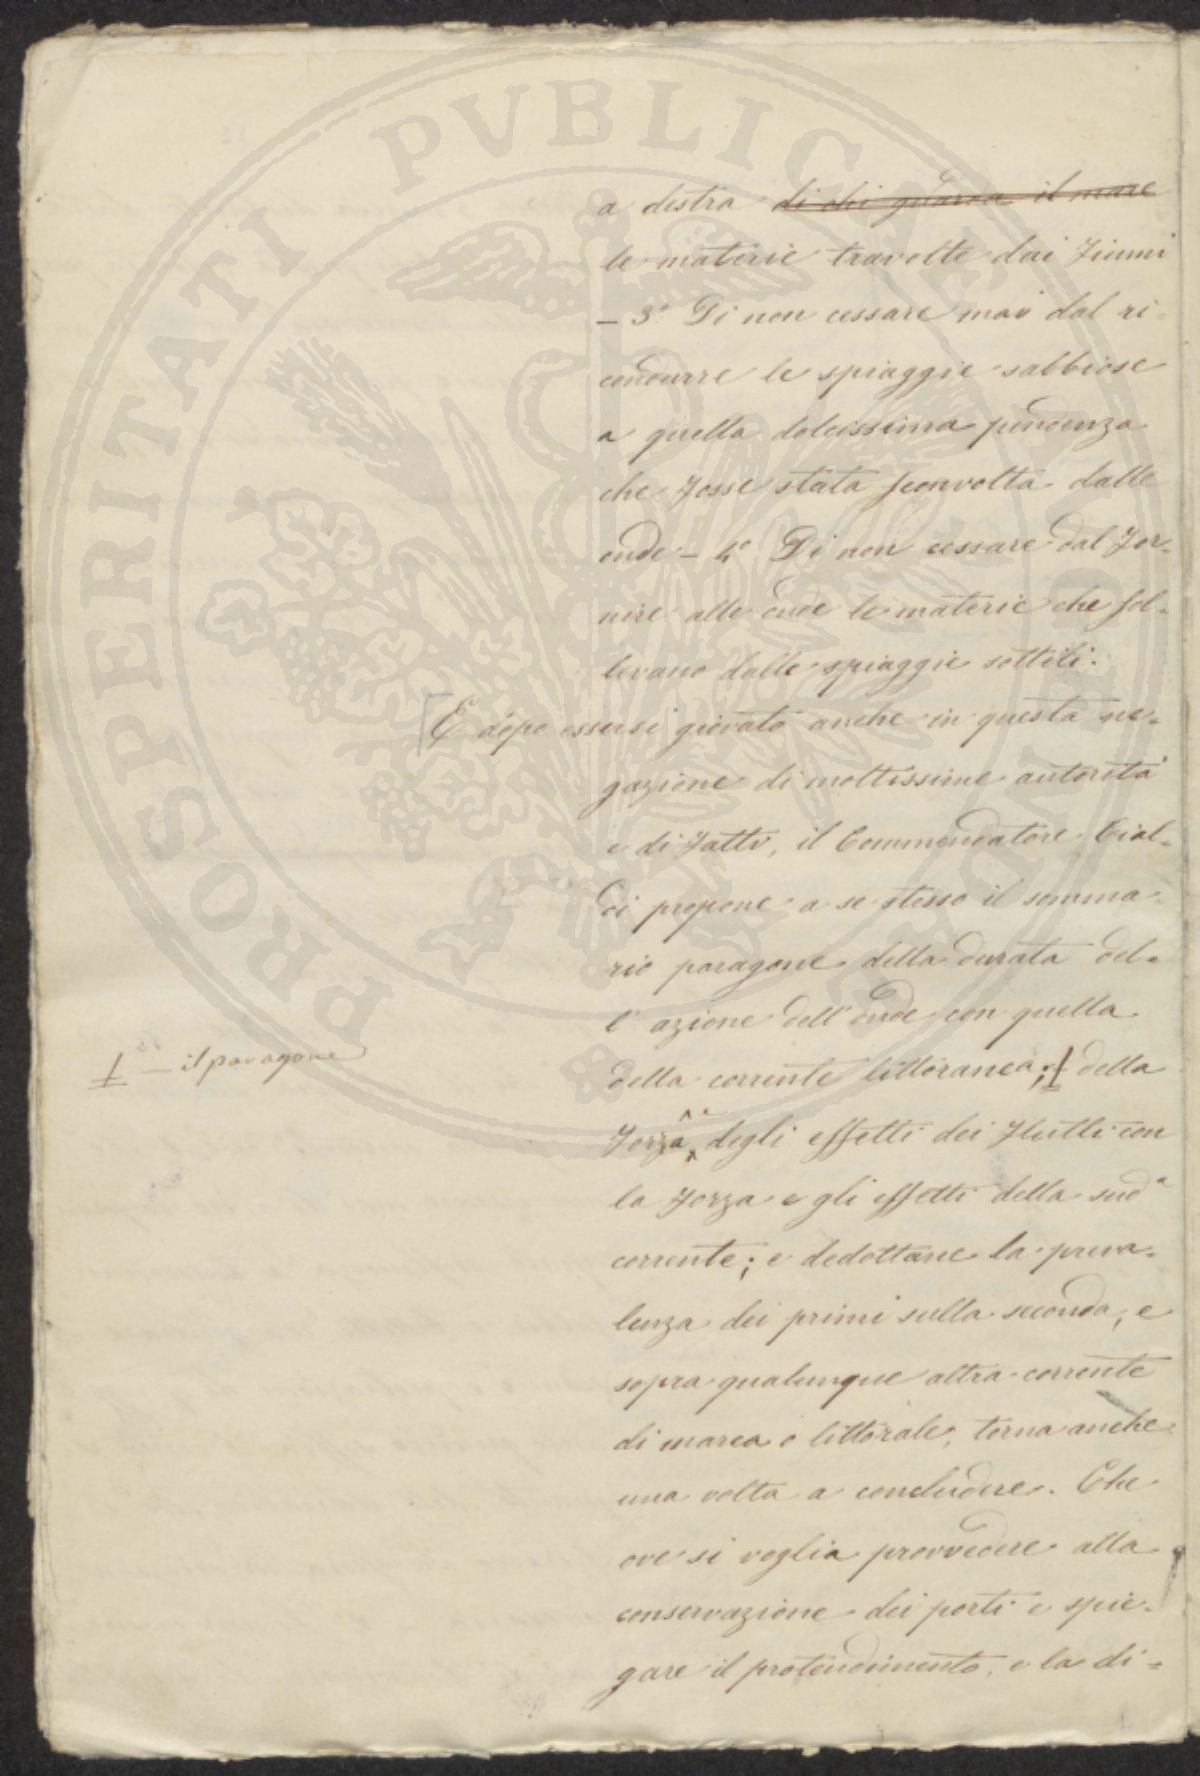 PROSPERITATI PVBLICAE
a destra di chi guarda il mare
le materie travolte dai fiumi
– 3° Di non cessare mai dal ri-
condurre le spiaggie sabbiose
a quella dolcissima pendenza
che fosse stata sconvolta dalle
onde – 4° Di non cessare dal for-
nire alle onde le materie che sol-
levano dalle spiaggie sottili.
E dopo essersi giovato anche in questa ne-
gazione di moltissime autorità
e di fatti, il Commendatore Cial-
di propone a se stesso il somma-
rio paragone della durata del-
l'azione dell'onde con quella
della corrente littoranea; della
1 – il paragone
forza, degli effetti dei flutti con
la forza e gli effetti della sud.ª
corrente; e dedottane la preva-
lenza dei primi sulla seconda, e
sopra qualunque altra corrente
di marea o littorale, torna anche
una volta a concludere. Che
ove si voglia provvedere alla
conservazione dei porti e spie-
gare il protendimento, e la di-